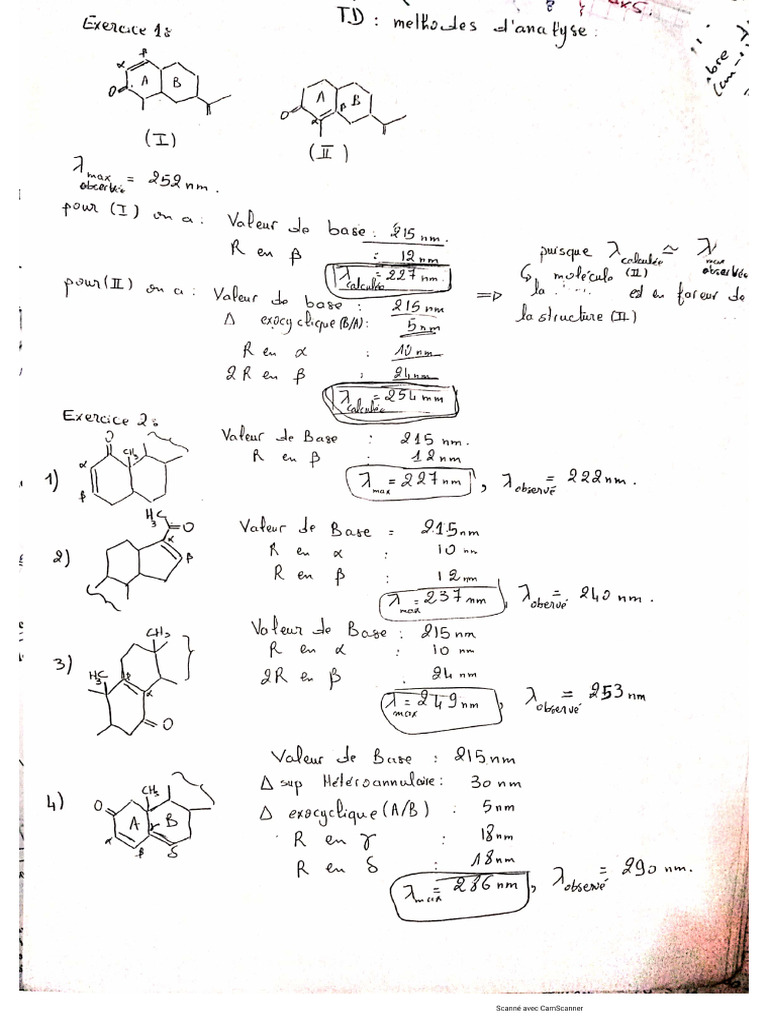 Exercice 1:
T.D : methodes d'analyse :
α β
A B
O
(I)
A B
β
O α
(II)
λmax observée = 252 nm.
pour (I) on a : Valeur de base : 215 nm.
R en β : 12 nm
λcalculée = 227 nm.
pour (II) on a : Valeur de base : 215 nm
Δ exocyclique (B/A) : 5 nm
R en α : 10 nm
2R en β : 24 nm
λcalculée = 254 nm
puisque λcalculée ≃ λmax observée
↳ molécule (II)
⇒ la ...... est en faveur de
la structure (II)
Exercice 2:
1)
O
α CH3
β
Valeur de Base : 215 nm.
R en β : 12 nm
λmax = 227 nm, λobservé = 222 nm.
2)
H3C
O
α
β
Valeur de Base = 215 nm
R en α : 10 nm
R en β : 12 nm
λmax = 237 nm, λobervé = 240 nm.
3)
CH3
H3C
β
α
O
Valeur de Base : 215 nm
R en α : 10 nm
2R en β : 24 nm
λmax = 249 nm, λobservé = 253 nm
4)
CH3
O
A B
γ
α β δ
Valeur de Base : 215 nm
Δ sup Hétéroannulaire : 30 nm
Δ exocyclique (A/B) : 5 nm
R en γ : 18 nm
R en δ : 18 nm
λmax = 286 nm, λobservé = 290 nm.
Scanné avec CamScanner